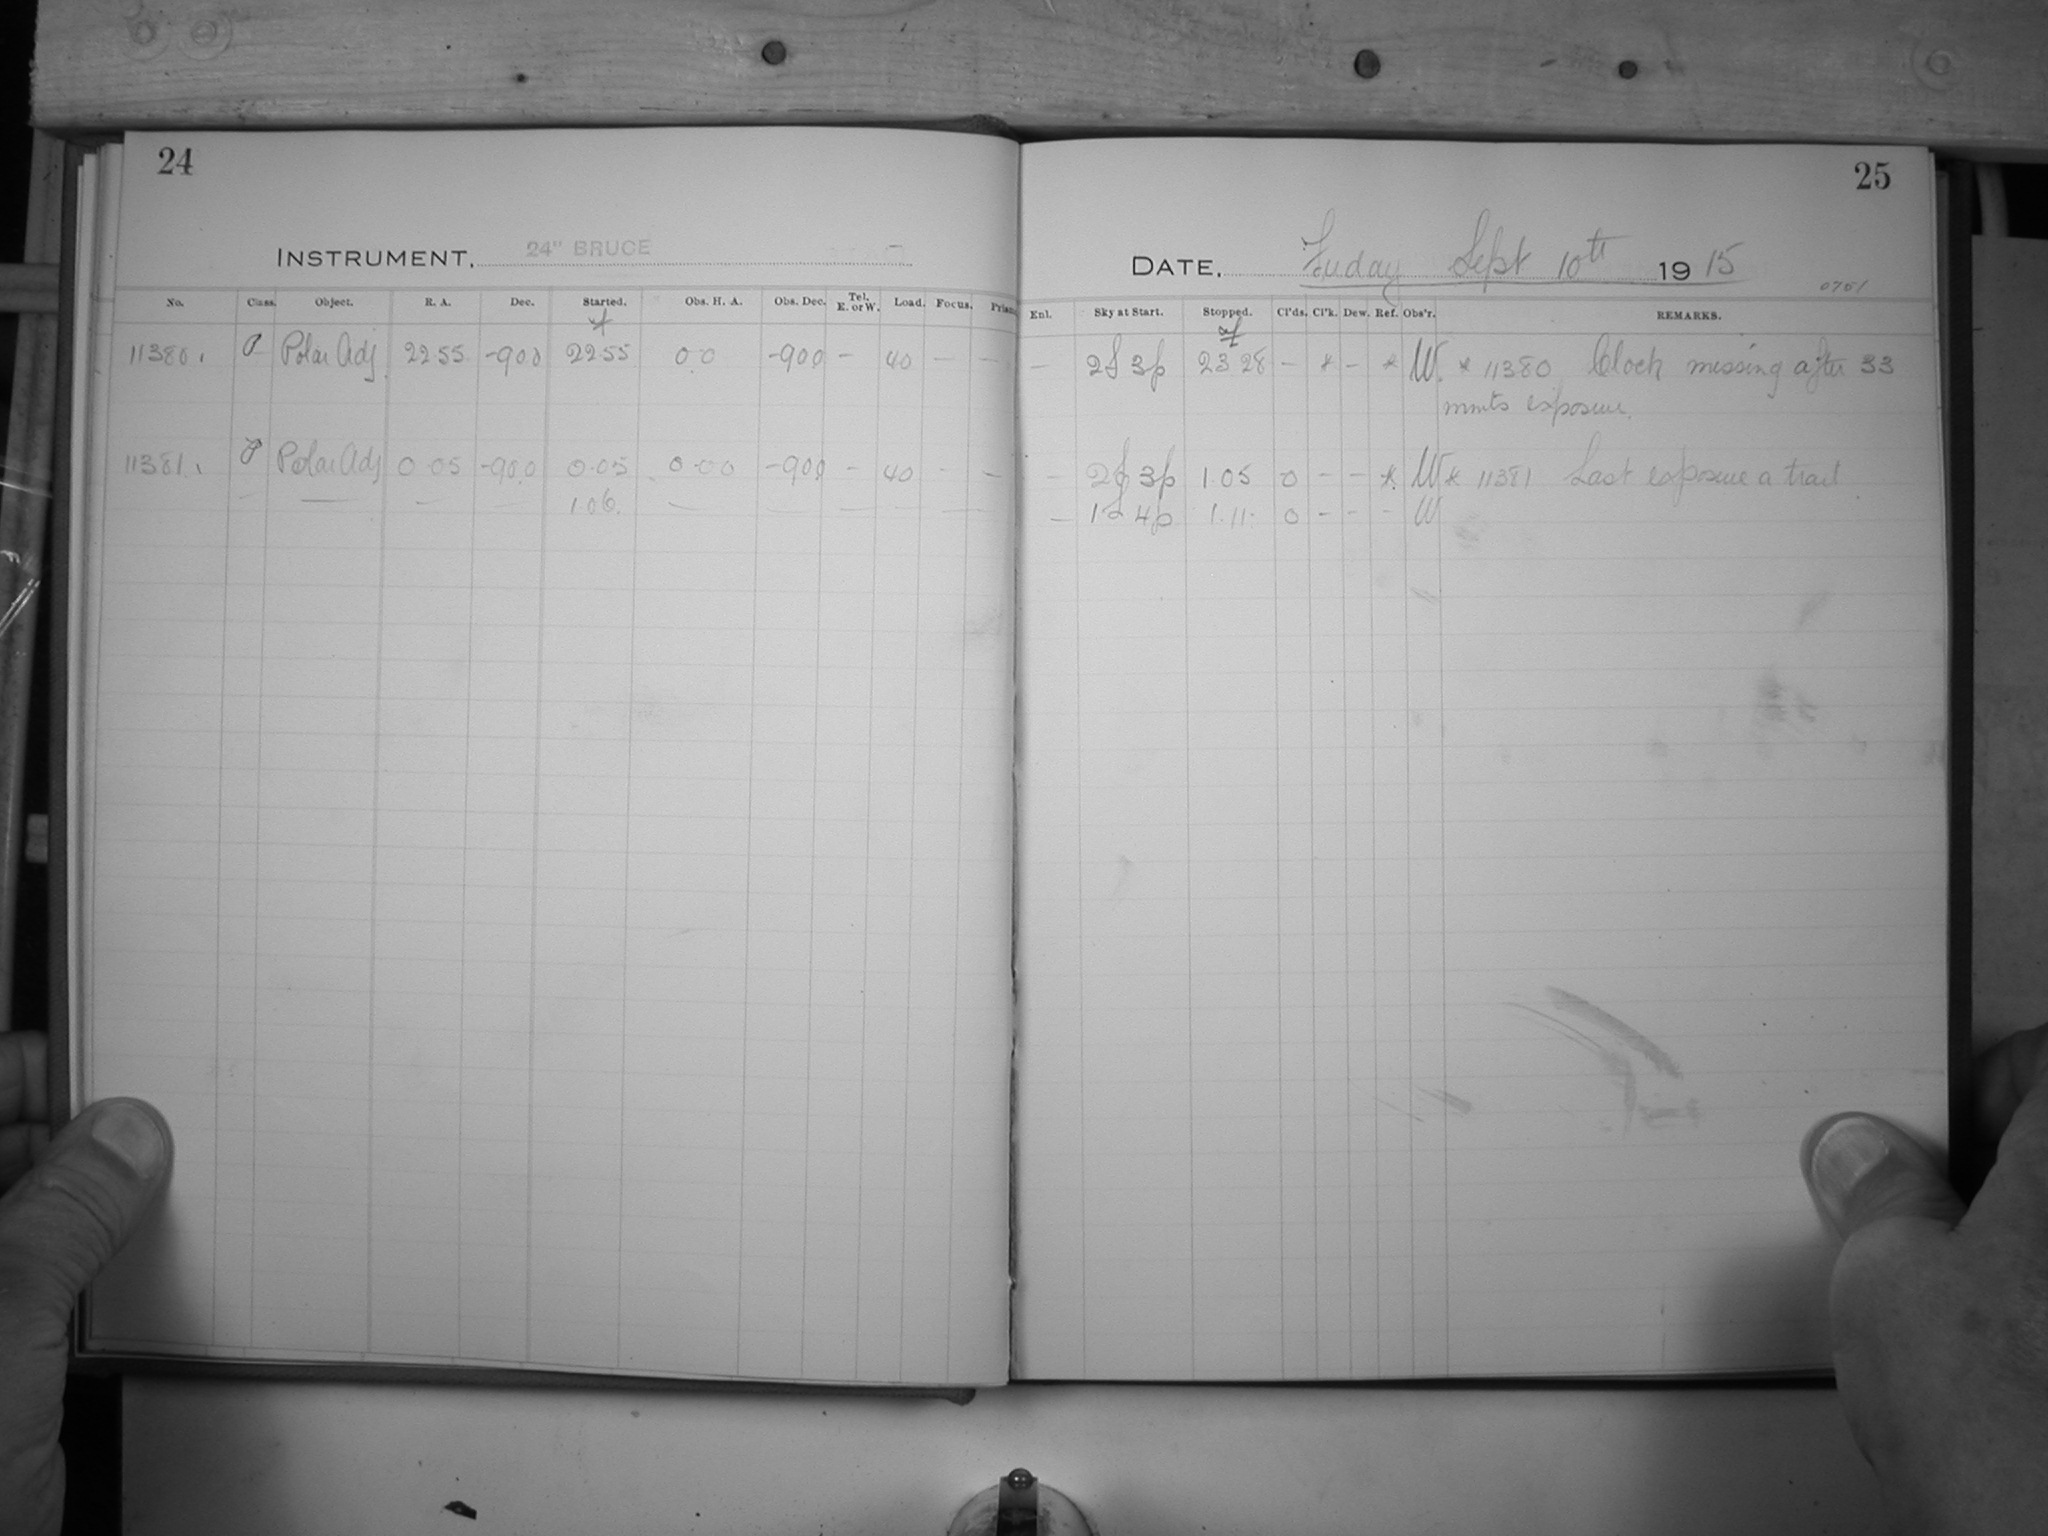 24
INSTRUMENT, 24" BRUCE
No. Class. Object. R. A. Dec. Started. Obs. H. A. Obs. Dec. Tel. E. or W. Load. Focus. Prism.
11380. P Polar Adj. 22 55 -90 0 22 55 0 0 -90 0 - 40 - -
11381. P Polar Adj 0 05 -90 0 0 05 0 00 -90 0 - 40 - -
1.06.
25
DATE, Friday Sept 10th 1915
0751
Enl. Sky at Start. Stopped. Cl'ds. Cl'k. Dew. Ref. Obs'r. REMARKS.
- 3p 23 28 - * - * W. * 11380 Clock missing after 33
mnts exposure.
- 3p 1.05 0 - - * W * 11381 Last exposure a trail
- 4p 1.11 0 - - - W